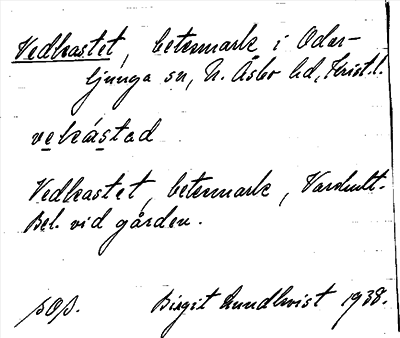 Vedkastet, betesmark i Oder-
ljunga sn, N. Åsbo hd, Krist. l.
vekástad
Vedkastet, betesmark, Varshult.
Bel. vid gården.
pop. Birgit Lundkvist 1938.